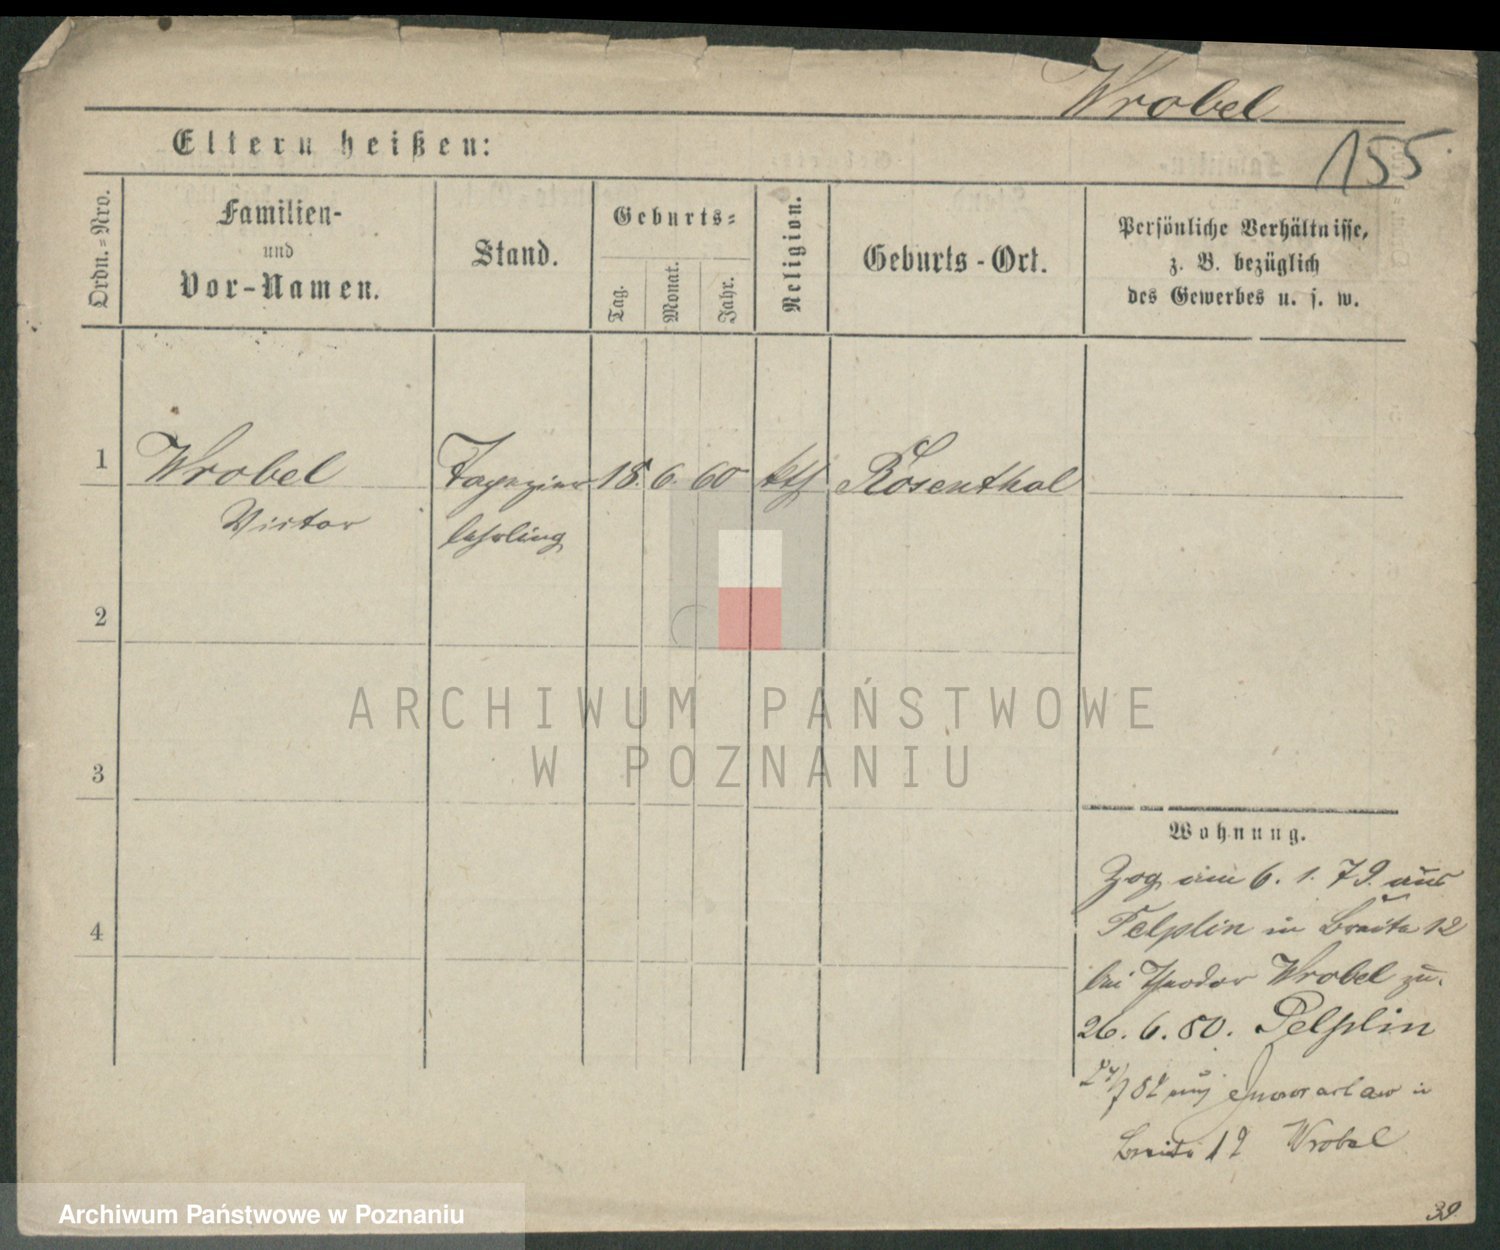 Wrobel
155
Eltern heißen:
Ordn.=Nro.
Familien-
und
Vor-Namen.
Stand.
Geburts=
Tag.
Monat.
Jahr.
Religion.
Geburts-Ort.
Persönliche Verhältnisse,
z. B. bezüglich
des Gewerbes u. s. w.
1 Wrobel Tapezier 18. 6. 60 kth Rosenthal
Victor lehrling
2
ARCHIWUM PAŃSTWOWE
W POZNANIU
3
Wohnung.
Zog am 6. 1. 79. aus
Pelplin in Breite 12
4
bei Theodor Wrobel zu.
26. 6. 80. Pelplin
82 Inowraclaw in
Breite 12 Wrobel
39
Archiwum Państwowe w Poznaniu